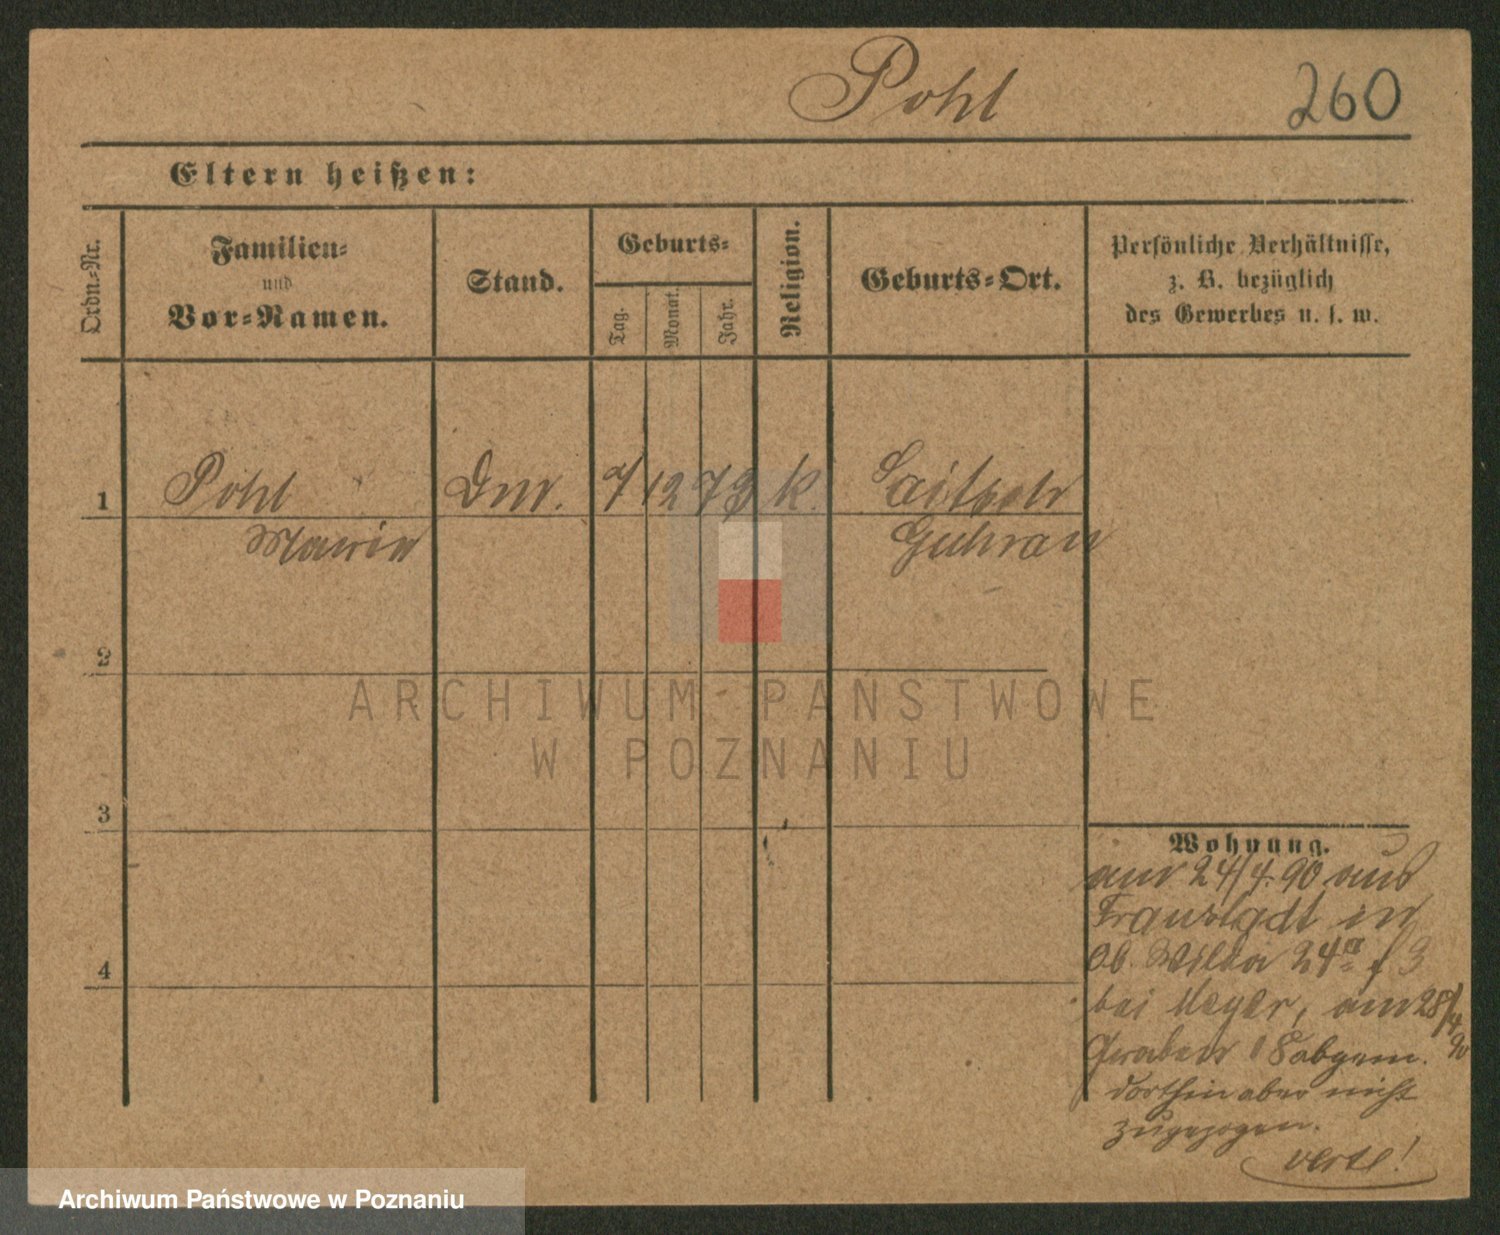 Pohl 260
Eltern heißen:
Ordn.-Nr.
Familien-
und
Vor-Namen.
Stand.
Geburts-
Tag.
Monat.
Jahr.
Religion.
Geburts-Ort.
Persönliche Verhältnisse,
z. B. bezüglich
des Gewerbes u. s. w.
1 Pohl Dm. 7 12 73 k.
Marie Guhrau
2
3
4
Wohnung.
am 24/4. 90 aus
Fraustadt in
Ob. Wilda 24a f 3
bei Meyer, am 28/4 90
Graben 18 abgem.
dorthin aber nicht
zugezogen.
verte!
ARCHIWUM PAŃSTWOWE
W POZNANIU
Archiwum Państwowe w Poznaniu